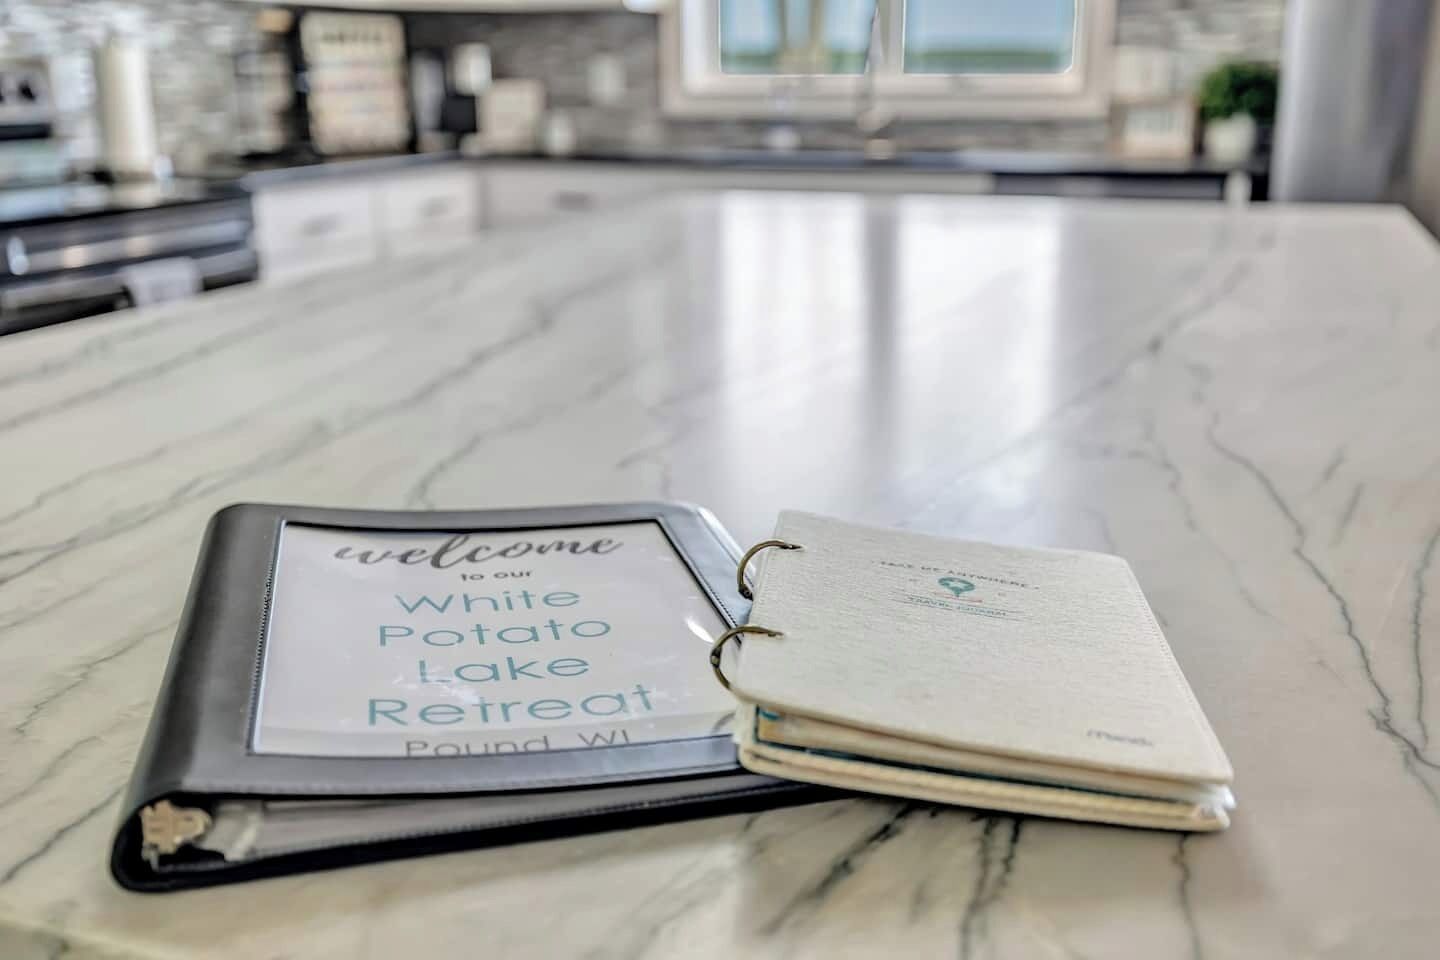 welcome
to our
White
Potato
Lake
Retreat
Pound, WI
TAKE ME ANYWHERE
TRAVEL JOURNAL